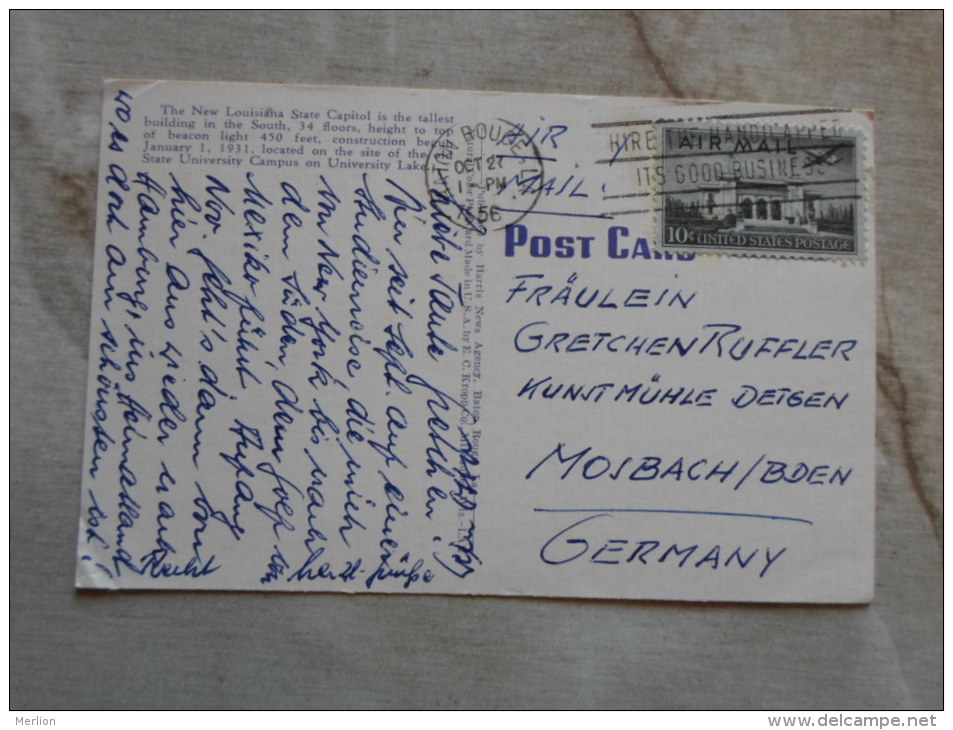 The New Louisiana State Capitol is the tallest
building in the South, 34 floors, height to top
of beacon light 450 feet, construction began
January 1, 1931, located on the site of the
State University Campus on University Lake.
BATON ROUGE, LA.
OCT 27
1 PM
1956
HIRE THE HANDICAPPED
ITS GOOD BUSINESS
AIR MAIL
10¢ UNITED STATES POSTAGE
AIR
MAIL!
POST CARD
by Harris News Agency, Baton Rouge
Made in U.S.A. by E. C. Kropp Co.
FRÄULEIN
GRETCHEN RUFFLER
KUNSTMÜHLE DEIGEN
MOSBACH/BDEN
GERMANY
Liebe Tante Gretchen!
Bin seit Sept. auf einer
Studienreise die mich
von New York bis nach
dem Süden, dem Golf von
Mexiko führt. Anfang
Nov. geht's dann von
hier aus wieder nach
Hamburg, ins Heimatland
wo es dort am schönsten ist!
Recht herzl. Grüße
Merlion
http://www.delcampe.net